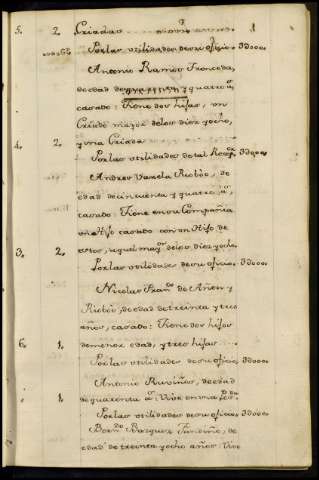 5. 2. Criados 1
Por las utilidades de su oficio 3D000
Antonio Ramos
de edad de quarenta y quatro a.s
casado: Tiene dos hijas, un
Criado mayor de los diez y ocho,
y una Criada
4. 2. Por las utilidades de tal 3D000
Andres Varela Riobóo, de
edad de cinquenta y quatro a.s
casado: Tiene en su Compañia
un hijo casado con un Hijo de
este, aquel may.r de los diez y ocho
3. 2. Por las utilidades de su oficio 3D000
Nicolas Fran.co de Añon y
Riobóo, de edad de treinta y tres
años, casado: Tiene dos hijos
de menor edad, y tres hijas
6. 1. Por las utilidades de su oficio 3D000
Antonio Ruviños, de edad
1. de quarenta a.s Vive
Por las utilidades de su oficio 3D000
Bern.do Vazquez Fandiño, de
edad de treinta y ocho años: Vive